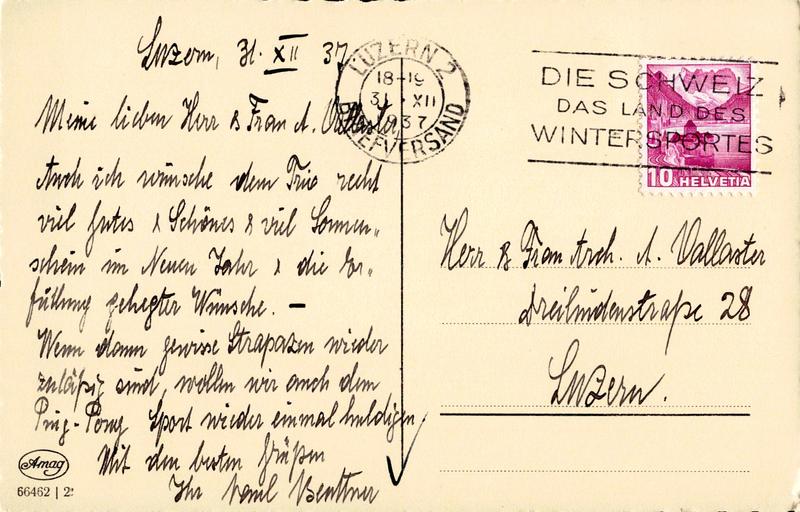 Luzern, 31. XII 37
Meine lieben Herr & Frau A. Vallaster
Auch ich wünsche dem Trio recht
viel Gutes & Schönes & viel Sonnen„
schein im Neuen Jahr & die Er„
füllung gehegter Wünsche. –
Wenn dann gewisse Strapazen wieder
zuläßig sind, wollen wir auch dem
Ping-Pong Sport wieder einmal huldigen
Mit den besten Grüßen
Ihr
Amag
66462 |
LUZERN 2
18-19
31. XII
1937
BRIEFVERSAND
DIE SCHWEIZ
DAS LAND DES
WINTERSPORTES
10 HELVETIA
Herr & Frau Arch. A. Vallaster
Dreilindenstraße 28
Luzern.